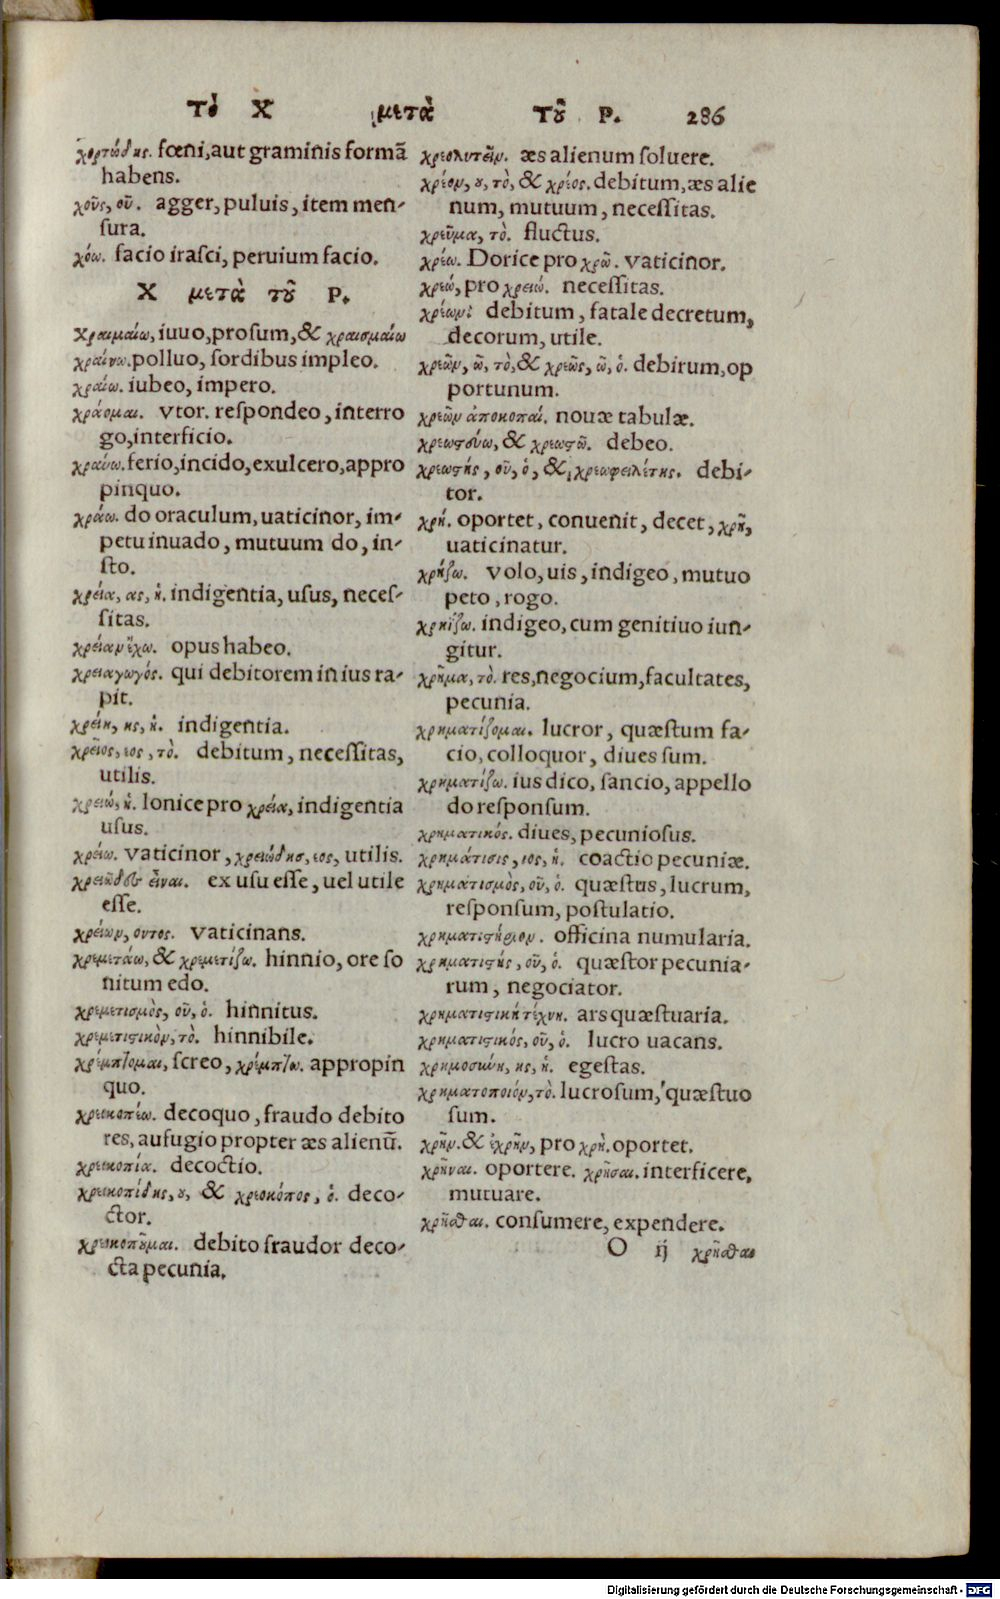 Τὸ Χ μετὰ Τοῦ Ρ. 286
χορτώδης. fœni, aut graminis formã
habens.
χοῦς, οῦ. agger, puluis, item men-
ſura.
χόω. facio iraſci, peruium facio.
Χ μετὰ τοῦ Ρ.
Χραιμαίω, iuuo, proſum, & χραισμαίω
χραίνω. polluo, ſordibus impleo.
χραίω. iubeo, impero.
χράομαι. vtor. reſpondeo, interro
go, interficio.
χραύω. ferio, incido, exulcero, appro
pinquo.
χράω. do oraculum, uaticinor, im-
petu inuado, mutuum do, in-
ſto.
χρεία, ας, ἡ. indigentia, uſus, neceſ-
ſitas.
χρείαν ἔχω. opus habeo.
χρειαγωγός. qui debitorem in ius ra-
pit.
χρείη, ης, ἡ. indigentia.
χρεῖος, ιος, τὸ. debitum, neceſſitas,
utilis.
χρειώ, ἡ. Ionice pro χρεία, indigentia
uſus.
χρείω. vaticinor, χρειώδης, ιος, utilis.
χρειῶδες εἶναι. ex uſu eſſe, uel utile
eſſe.
χρείων, οντος. vaticinans.
χρεμετάω, & χρεμετίζω. hinnio, ore ſo
nitum edo.
χρεμετισμὸς, οῦ, ὁ. hinnitus.
χρεμετιστικὸν, τὸ. hinnibile.
χρέμπτομαι, ſcreo, χρέμπτω. appropin
quo.
χρεοκοπέω. decoquo, fraudo debito
res, aufugio propter æs alienũ.
χρεοκοπία. decoctio.
χρεοκοπίδης, ου, & χρεοκόπος, ὁ. deco-
ctor.
χρεοκοποῦμαι. debito fraudor deco-
cta pecunia.
χρεολυτεῖν. æs alienum ſoluere.
χρέον, ου, τὸ, & χρέος. debitum, æs alie
num, mutuum, neceſſitas.
χρεῦμα, τὸ. fluctus.
χρέω. Dorice pro χρῶ. vaticinor.
χρεώ, pro χρειώ. neceſſitas.
χρέωμ: debitum, fatale decretum,
decorum, utile.
χρεῶν, ῶ, τὸ, & χρεῶς, ῶ, ὁ. debirum, op
portunum.
χρεῶν ἀποκοπαί. nouæ tabulæ.
χρεωστύω, & χρεωστῶ. debeo.
χρεωστής, οῦ, ὁ, & χρεωφειλέτης. debi-
tor.
χρή. oportet, conuenit, decet, χρῆ,
uaticinatur.
χρήζω. volo, uis, indigeo, mutuo
peto, rogo.
χρηΐζω. indigeo, cum genitiuo iun-
gitur.
χρῆμα, τὸ. res, negocium, facultates,
pecunia.
χρηματίζομαι. lucror, quæſtum fa-
cio, colloquor, diues ſum.
χρηματίζω. ius dico, ſancio, appello
do reſponſum.
χρηματικός. diues, pecunioſus.
χρημάτισις, ιος, ἡ. coactio pecuniæ.
χρηματισμὸς, οῦ, ὁ. quæſtus, lucrum,
reſponſum, poſtulatio.
χρηματιστήριον. officina numularia.
χρηματιστής, οῦ, ὁ. quæſtor pecunia-
rum, negociator.
χρηματιστικὴ τέχνη. ars quæſtuaria.
χρηματιστικός, οῦ, ὁ. lucro uacans.
χρημοσύνη, ης, ἡ. egeſtas.
χρηματοποιόν, τὸ. lucroſum, quæſtuo
ſum.
χρῆν. & ἐχρῆν, pro χρὴ. oportet.
χρῆναι. oportere. χρῆσαι. interficere,
mutuare.
χρῆσθαι. conſumere, expendere.
O ij χρῆσθαι
Digitalisierung gefördert durch die Deutsche Forschungsgemeinschaft - DFG